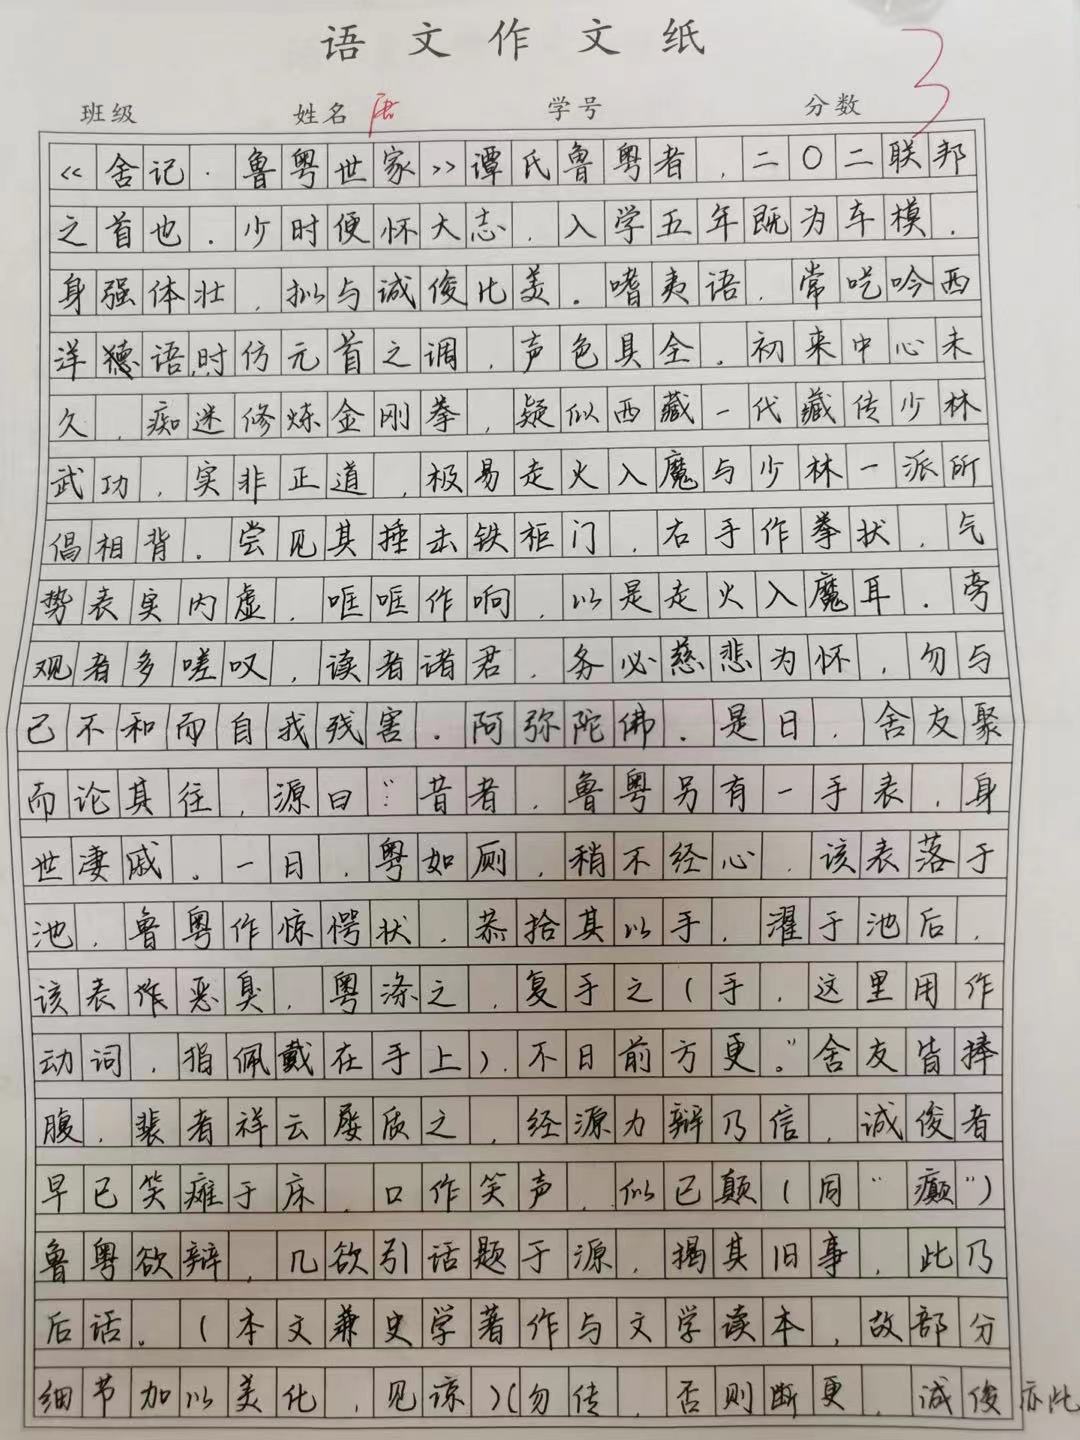 语文作文纸
3
班级 姓名 学号 分数
《舍记·鲁粤世家》谭氏鲁粤者，二〇二联邦
之首也．少时便怀大志，入学五年既为车模．
身强体壮，拟与诚俊比美。嗜夷语，常吃吟西
洋德语，时仿元首之调，声色具全．初来中心未
久，痴迷修炼金刚拳，疑似西藏一代藏传少林
武功，实非正道，极易走火入魔与少林一派所
倡相背．尝见其捶击铁柜门，右手作拳状，气
势表实内虚，哐哐作响，以是走火入魔耳．旁
观者多嗟叹，读者诸君，务必慈悲为怀，勿与
己不和而自我残害．阿弥陀佛．是日，舍友聚
而论其往，源曰：“昔者，鲁粤另有一手表，身
世凄戚。一日，粤如厕，稍不经心，该表落于
池，鲁粤作惊愕状，恭拾其以手，濯于池后，
该表作恶臭，粤涤之，复手之（手，这里用作
动词，指佩戴在手上），不日前方更。”舍友皆捧
腹，裴者祥云屡质之，经源力辩乃信，诚俊者
早已笑瘫于床，口作笑声，似已颠（同“癫”）
鲁粤欲辩，几欲引话题于源，揭其旧事，此乃
后话。（本文兼史学著作与文学读本，故部分
细节加以美化，见谅）（勿传，否则断更，诚俊亦此